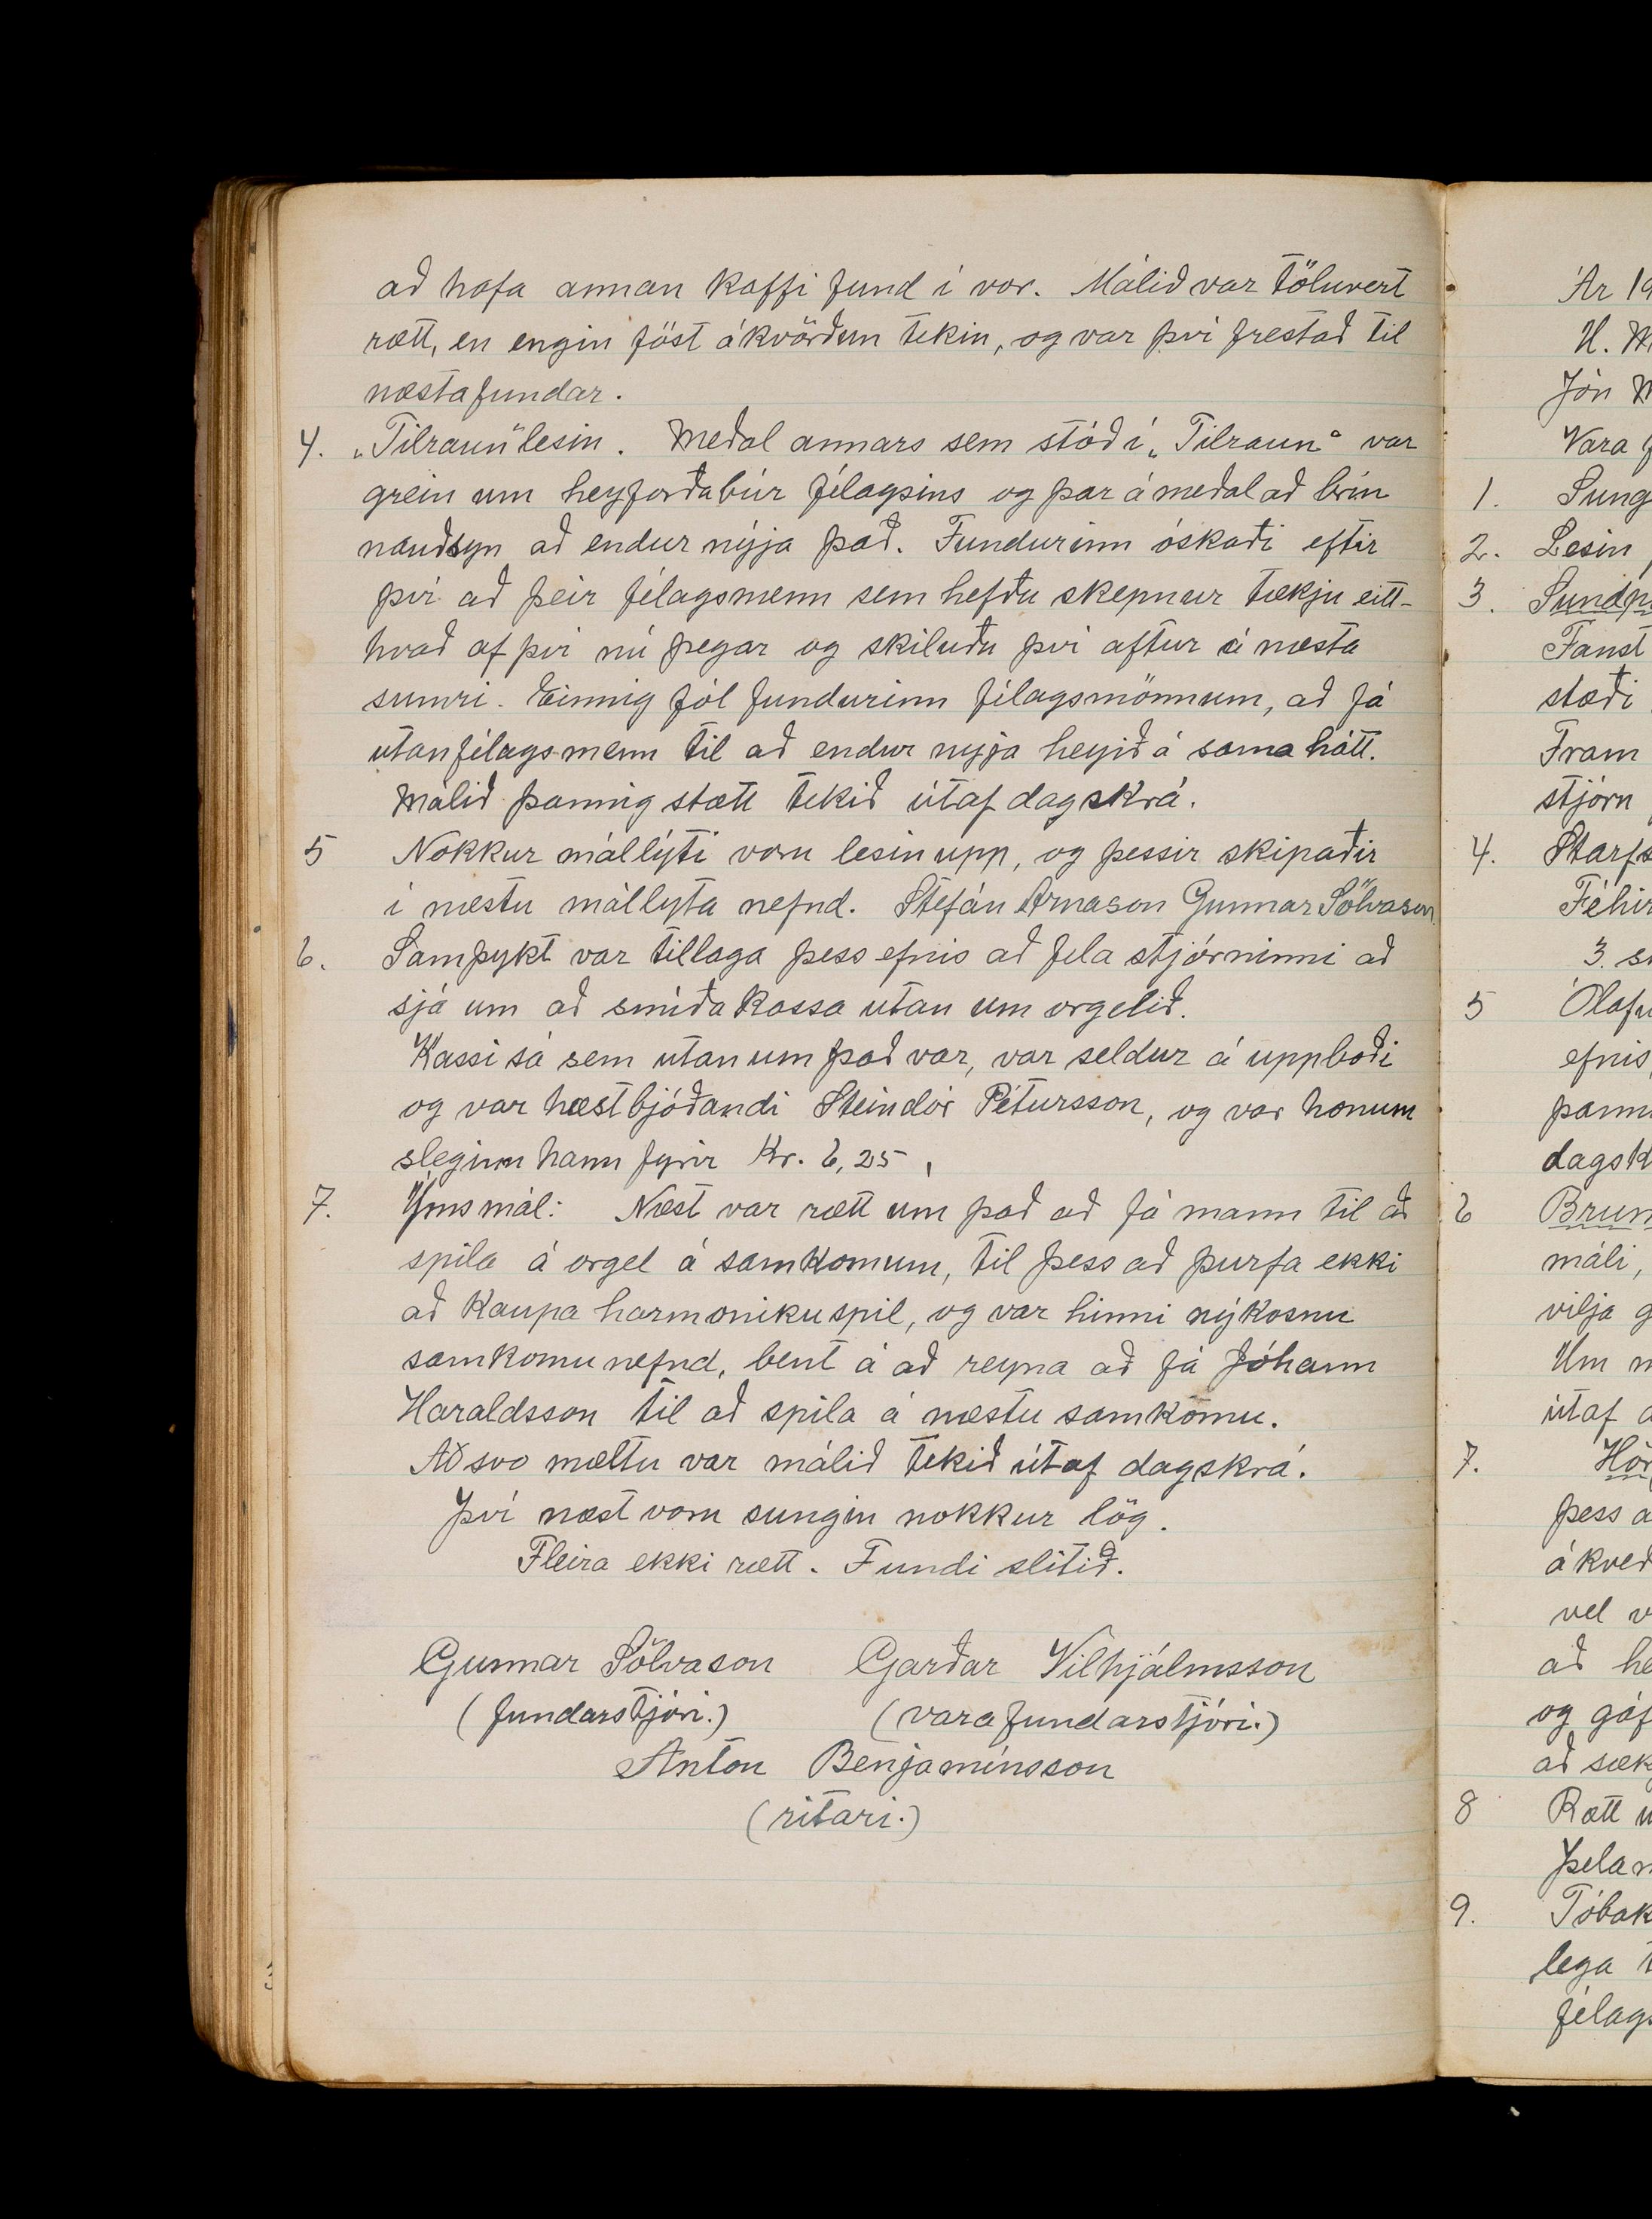 að hafa annan kaffi fund í vor. Málið var töluvert
rætt, en engin föst ákvörðun tekin, og var því frestað til
næstafundar.
4. „Tilraun“ lesin. Meðal annars sem stóð í „Tilraun“ var
grein um heyforðabúr félagsins og þar á meðal að brín
nauðsyn að endur nýja það. Fundurinn óskaði eftir
því að þeir félagsmenn sem hefðu skepnur tækju eitt-
hvað af því nú þegar og skiluðu því aftur á næsta
sumri. Einnig fól fundurinn félagsmönnum, að fá
utanfélagsmenn til að endur nyja heyið á sama hátt.
Málið þannig stætt tekið útaf dagskrá.
5 Nokkur mállýti voru lesin upp, og þessir skipaðir
í næstu mállýta nefnd. Stefán Arnason Gunnar Sölvason
6. Samþykt var tillaga þess efnis að fela stjórninni að
sjá um að smíða kassa utan um orgelið.
Kassi sá sem utan um það var, var seldur á uppboði
og var hæstbjóðandi Steindór Pétursson, og var honum
sleginn hann fyrir Kr. 6,25,
7. Ýms mál: Næst var rætt um það að fá mann til að
spila á orgel á samkomum, til þess að þurfa ekki
að kaupa harmonikuspil, og var hinni nýkosnu
samkomunefnd, bent á að reyna að fá Jóhann
Haraldsson til að spila á næstu samkomu.
Að svo mæltu var málið tekið útaf dagskrá.
Því næst voru sungin nokkur lög.
Fleira ekki rætt. Fundi slitið.
Gunnar Sölvason Garðar Vilhjálmsson
(fundarstjóri.) (varafundarstjóri.)
Anton Benjamínsson
(ritari.)
Ár 19
H.
Jón
Vara
1. Sung
2. Lesin
3. Sund
Fanst
stæði
Fram
stjórn
4. Starfs
Féhir
3.
5 Ólafu
efnis
þann
dagsk
6 Brun
máli,
vilja g
Um
útaf
7. Hör
þess a
ákveð
vel v
að he
og gáf
að sæk
8 Rætt
Þelam
9. Tóbak
lega
félags